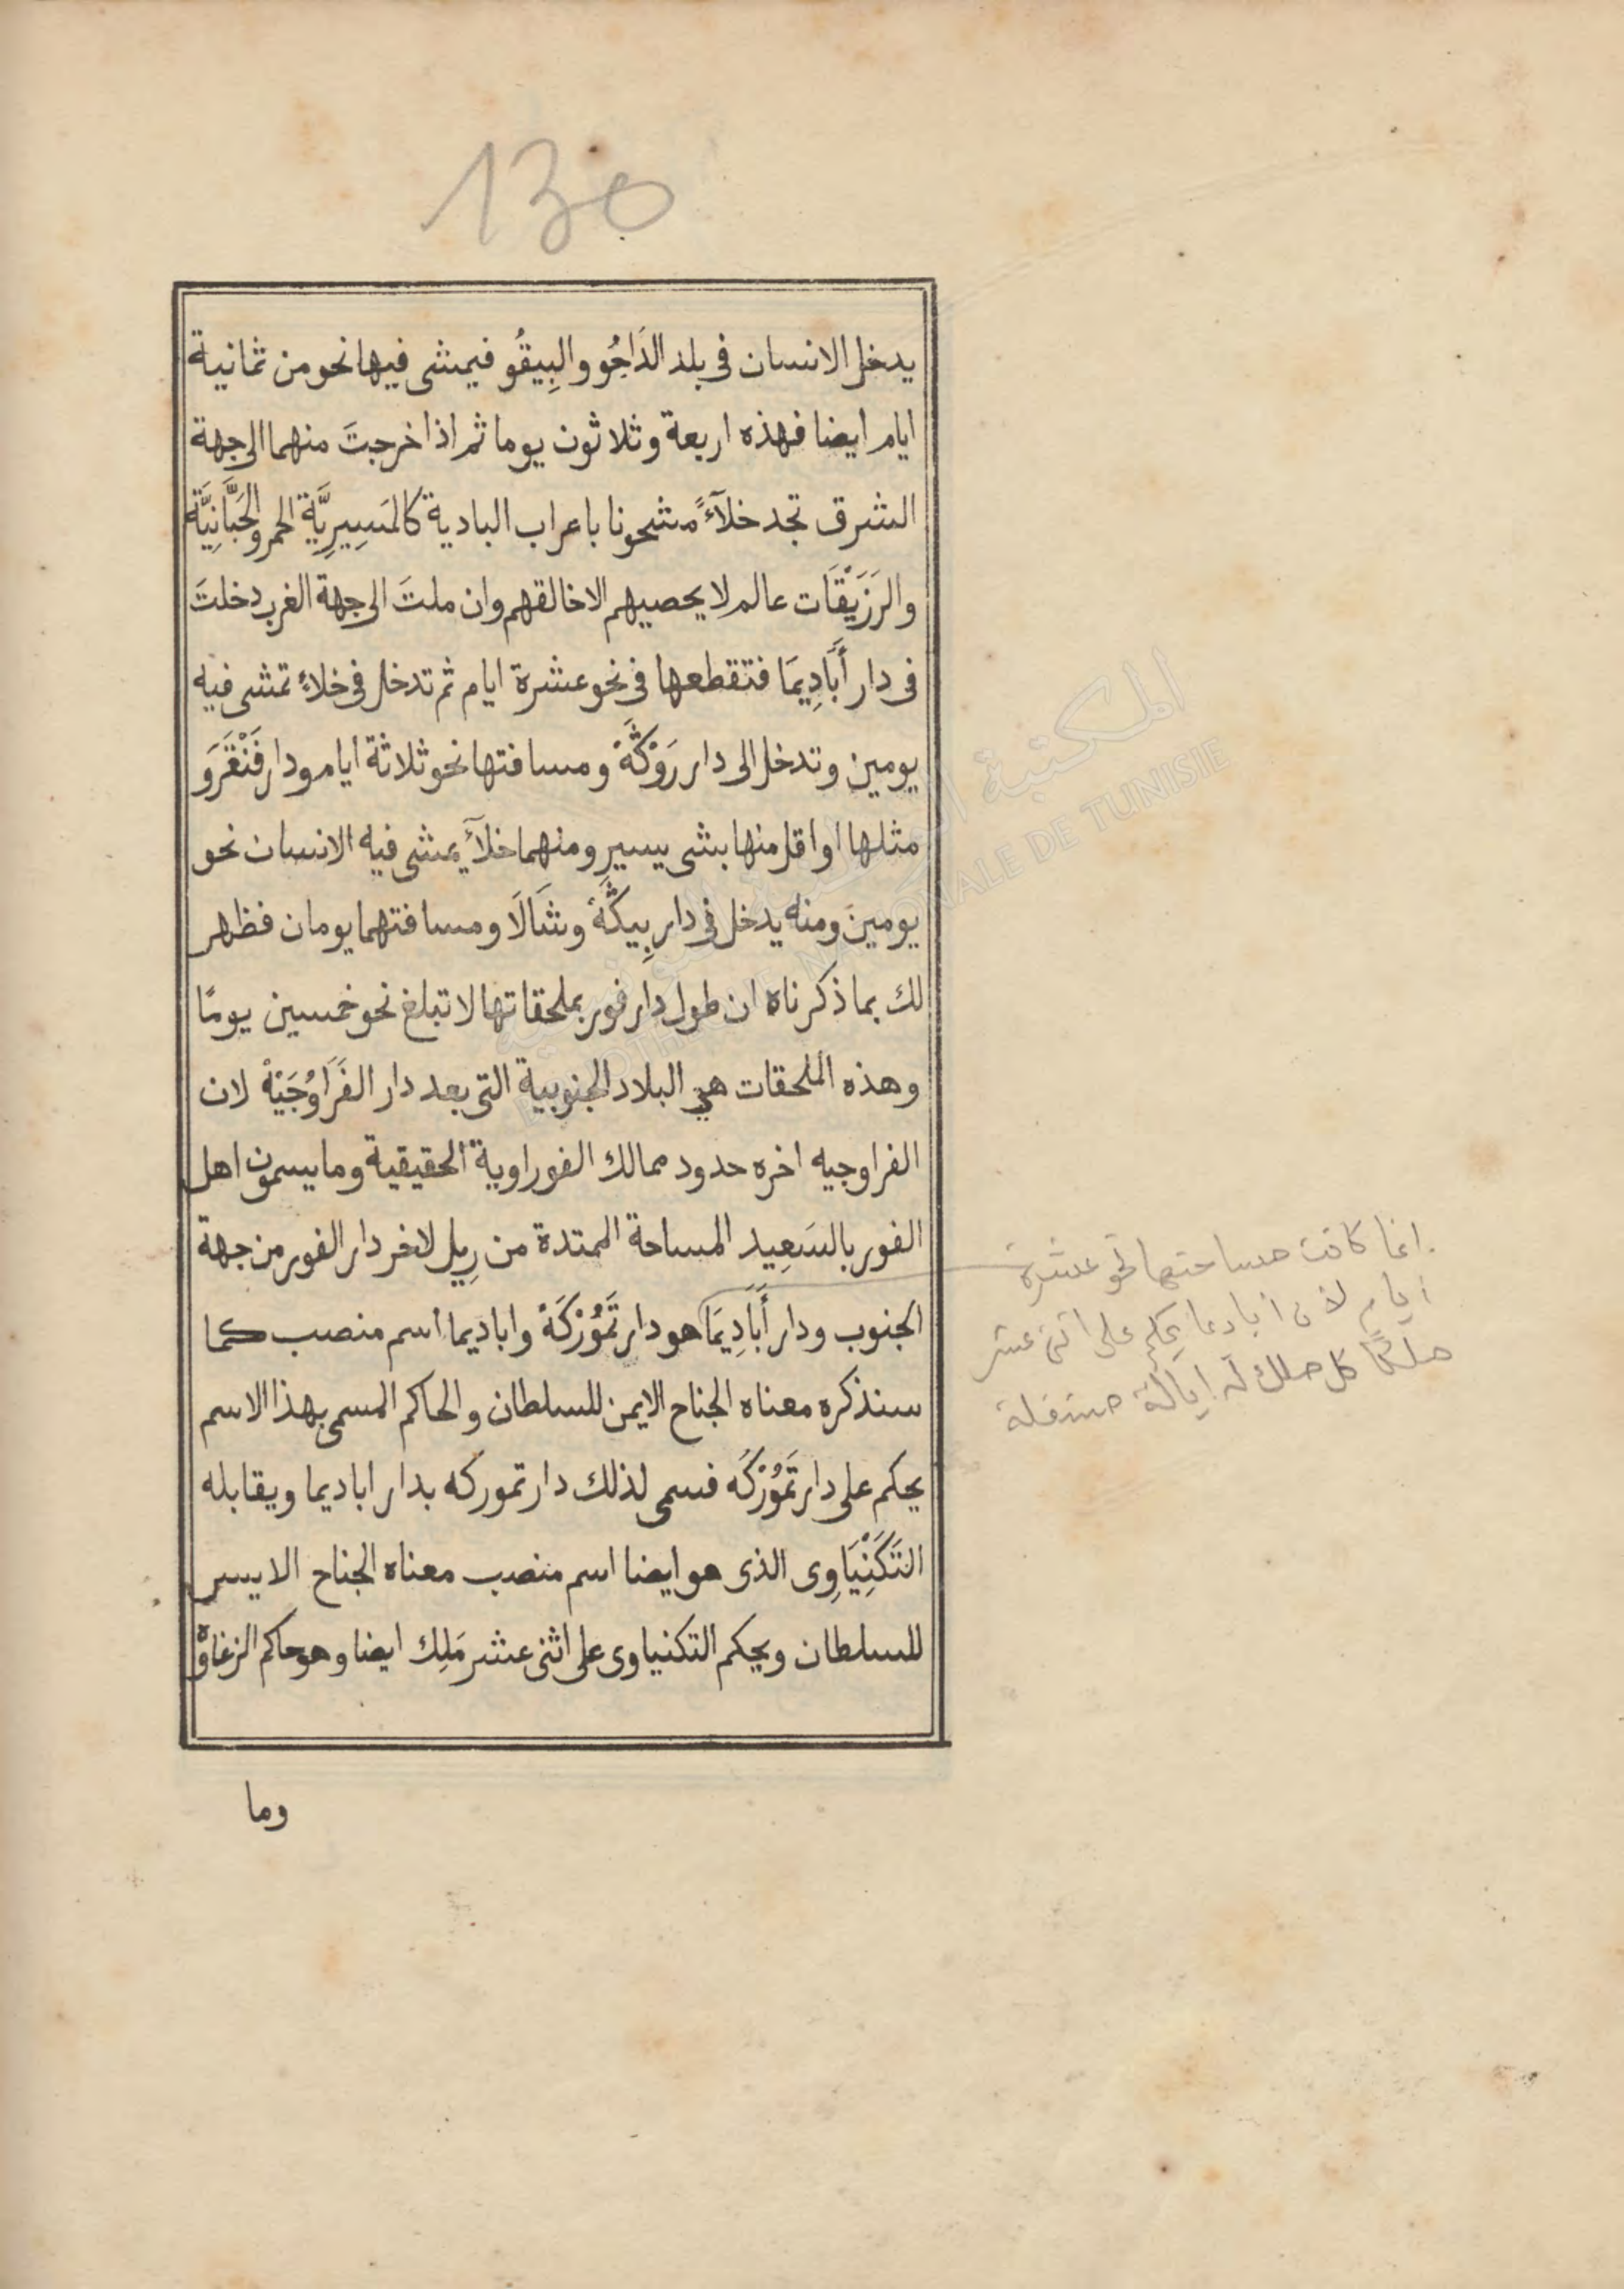 130
يدخل الانسان فى بلد الدَاجُو والبِيقُو فيمشى فيها نحو من ثمانية
ايام ايضا فهذه اربعة وثلاثون يوما ثم اذا خرجتَ منهما الى جهة
الشرق تجد خلآءً مشحونا باعراب البادية كالمَسِيرِيَّة الحمر والحَبَّانِيَّة
والرَزَيْقَات عالم لا يحصيهم الا خالقهم وان ملتَ الى جهة الغرب دخلتَ
فى دار أَبَّادِيمَا فتقطعها فى نحو عشرة ايام ثم تدخل فى خلاءٍ تمشى فيه
يومين وتدخل الى دار رَوْكَّهْ ومسافتها نحو ثلاثة ايام ودار فَنْقَرَو
مثلها او اقل منها بشى يسير ومنهما خلآءٌ يمشى فيه الانسان نحو
يومين ومنه يدخل فى دار بِيكَّهْ وشَالَا ومسافتهما يومان فظهر
لك بما ذكرناه ان طول دار فور بملحقاتها لا تبلغ نحو خمسين يومًا
وهذه الملحقات هي البلاد الجنوبية التى بعد دار الفَرَاوُجَيْهْ لان
الفراوجيه اخره حدود ممالك الفوراوية الحقيقية وما يسمون اهل
الفور بالسَعِيد المساحة الممتدة من رِيل لاخر دار الفور من جهة
الجنوب ودار أَبَّادِيمَا هو دار تَمُوْرْكَهْ واباديما اسم منصب كما
سنذكره معناه الجناح الايمن للسلطان والحاكم المسمى بهذا الاسم
يحكم على دار تَمُوْرْكَه فسمى لذلك دار تموركه بدار اباديما ويقابله
التَكَنِْيَاوِى الذى هو ايضا اسم منصب معناه الجناح الايسر
للسلطان ويحكم التكنياوى على اثنى عشر مَلِك ايضا وهو حاكم الزغاوة
وما
انما كانت مساحتها نحو عشرة
ايام لان اباديما يحكم على اثنى عشر
ملكًا كل ملك له ايالة مستقلة
المكتبة
BIBLIOTHEQUE NATIONALE DE TUNISIE